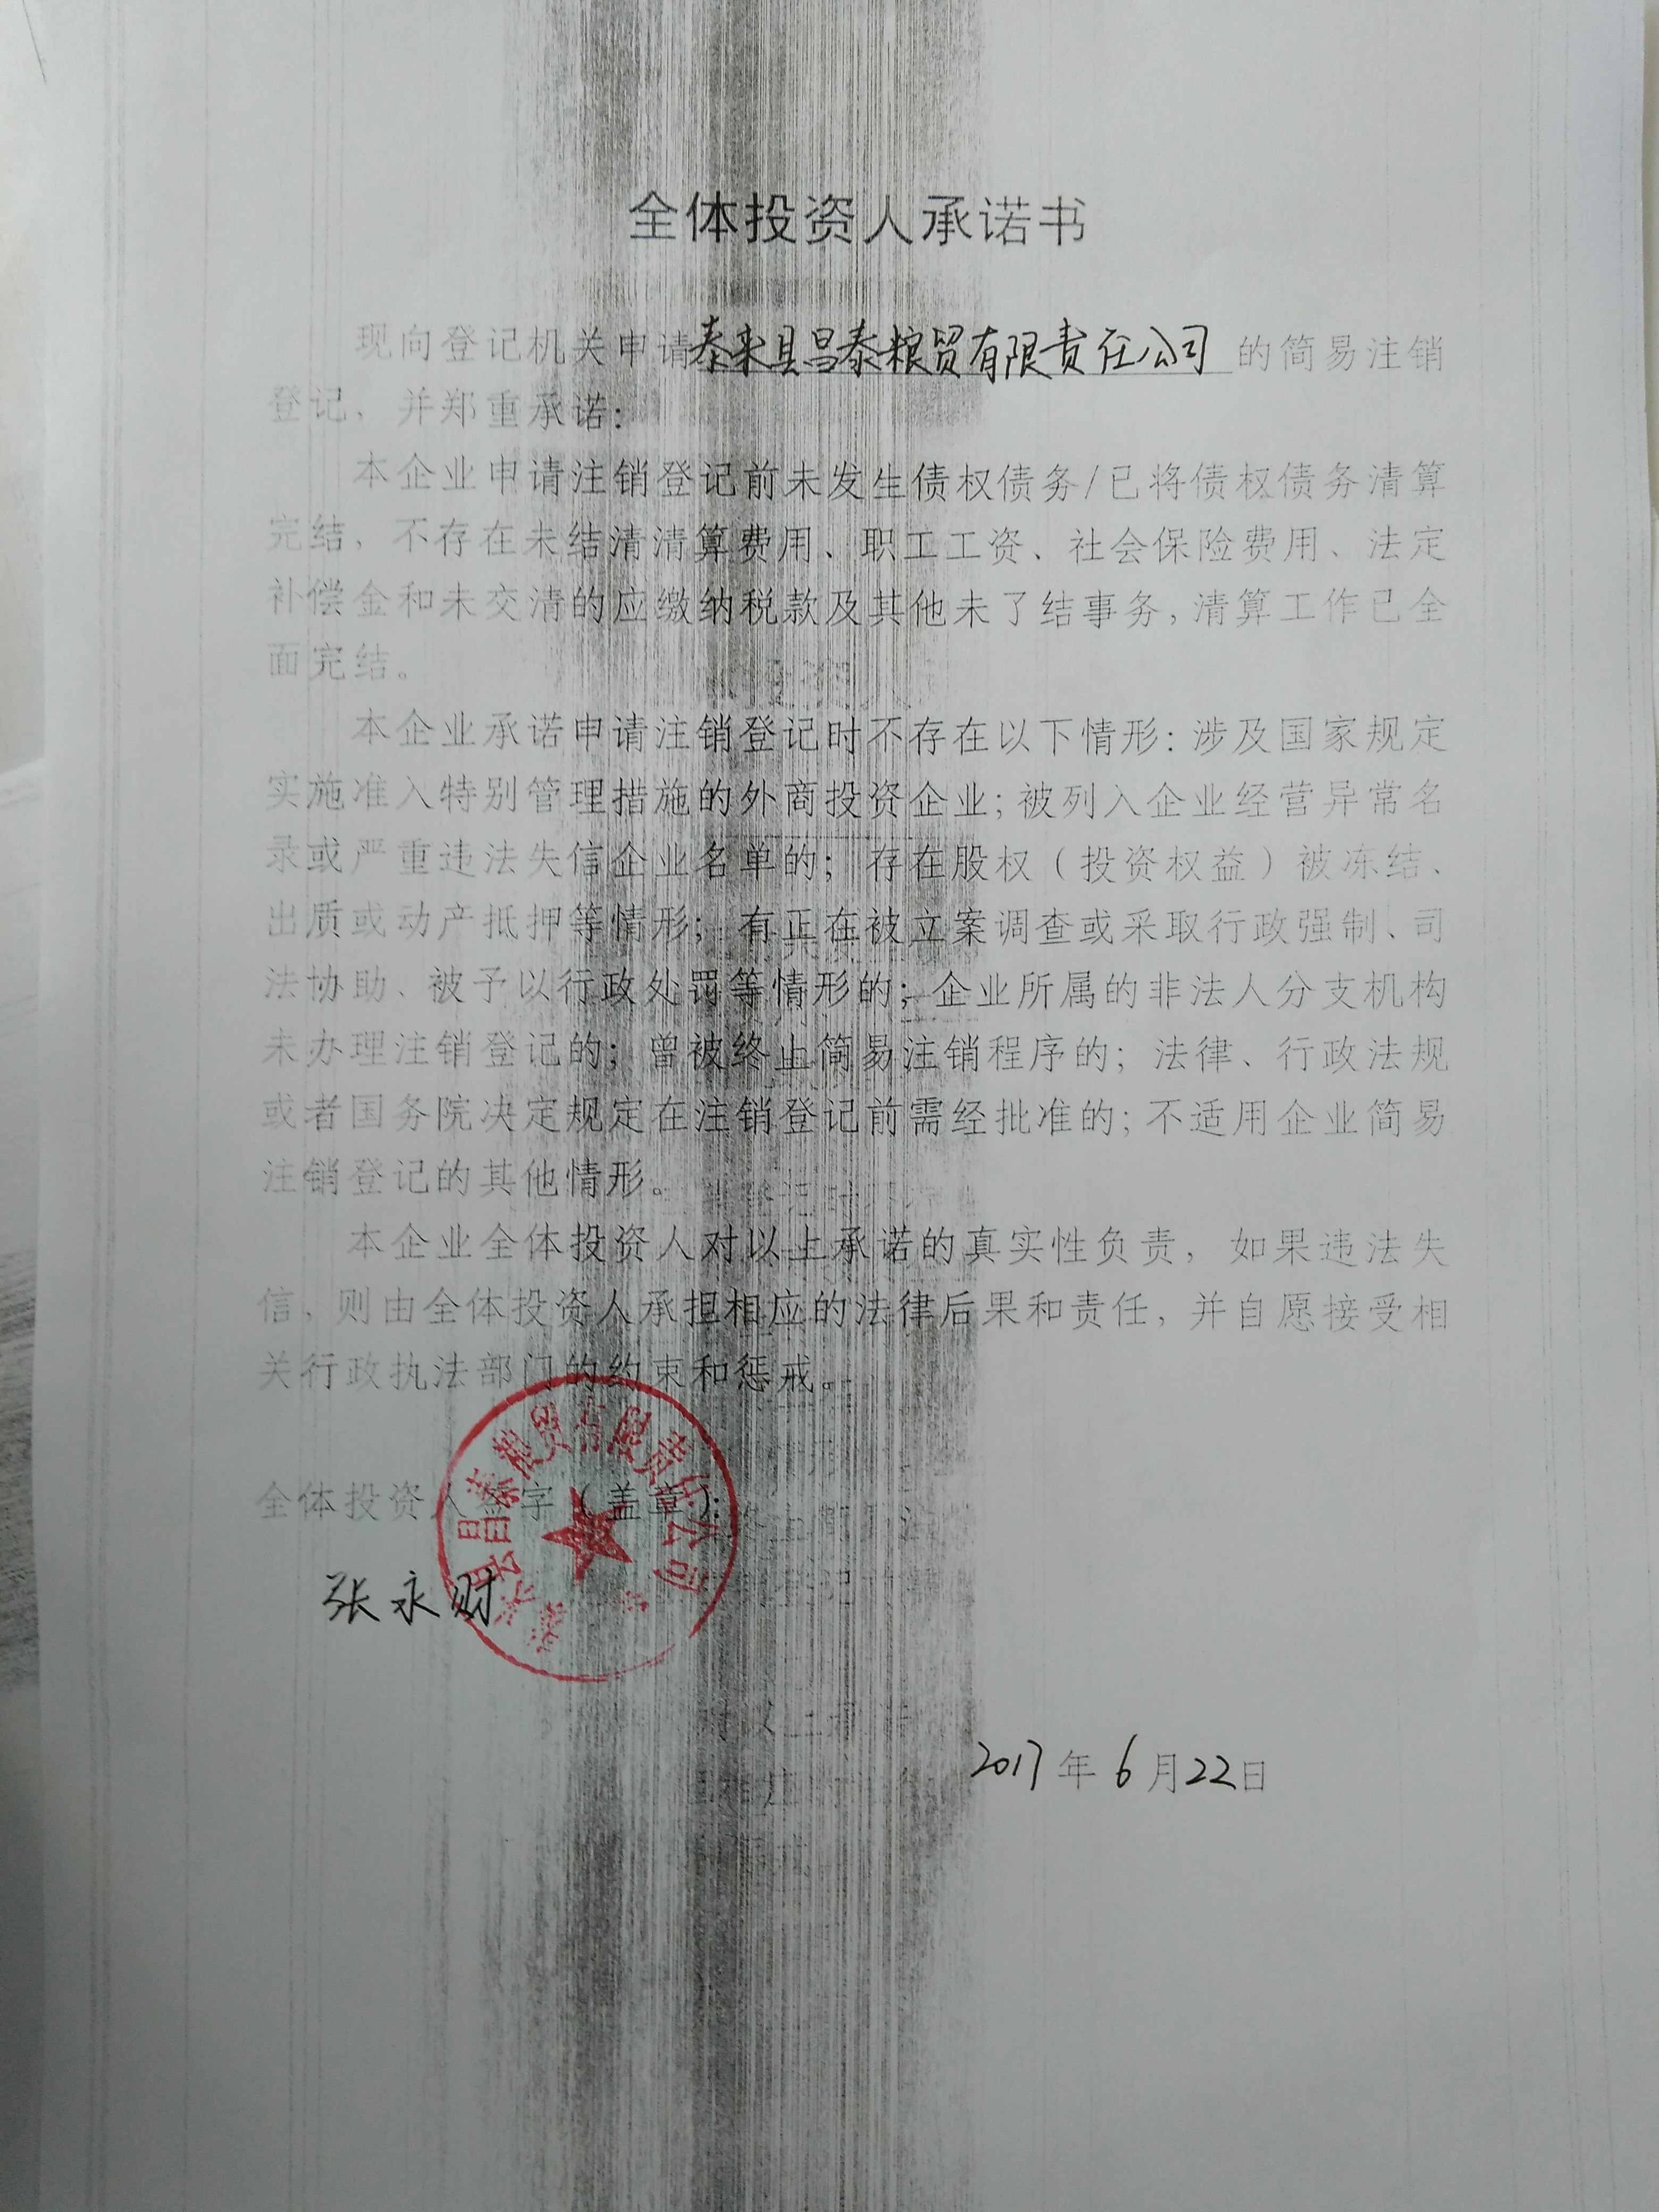 全体投资人承诺书
现向登记机关申请泰来县昌泰粮贸有限责任公司的简易注销
登记，并郑重承诺：
本企业申请注销登记前未发生债权债务/已将债权债务清算
完结，不存在未结清清算费用、职工工资、社会保险费用、法定
补偿金和未交清的应缴纳税款及其他未了结事务，清算工作已全
面完结。
本企业承诺申请注销登记时不存在以下情形：涉及国家规定
实施准入特别管理措施的外商投资企业；被列入企业经营异常名
录或严重违法失信企业名单的；存在股权（投资权益）被冻结、
出质或动产抵押等情形；有正在被立案调查或采取行政强制、司
法协助、被予以行政处罚等情形的；企业所属的非法人分支机构
未办理注销登记的；曾被终止简易注销程序的；法律、行政法规
或者国务院决定规定在注销登记前需经批准的；不适用企业简易
注销登记的其他情形。
本企业全体投资人对以上承诺的真实性负责，如果违法失
信，则由全体投资人承担相应的法律后果和责任，并自愿接受相
关行政执法部门的约束和惩戒。
泰来县昌泰粮贸有限责任公司
全体投资人签字（盖章）：
张永财
2017年6月22日